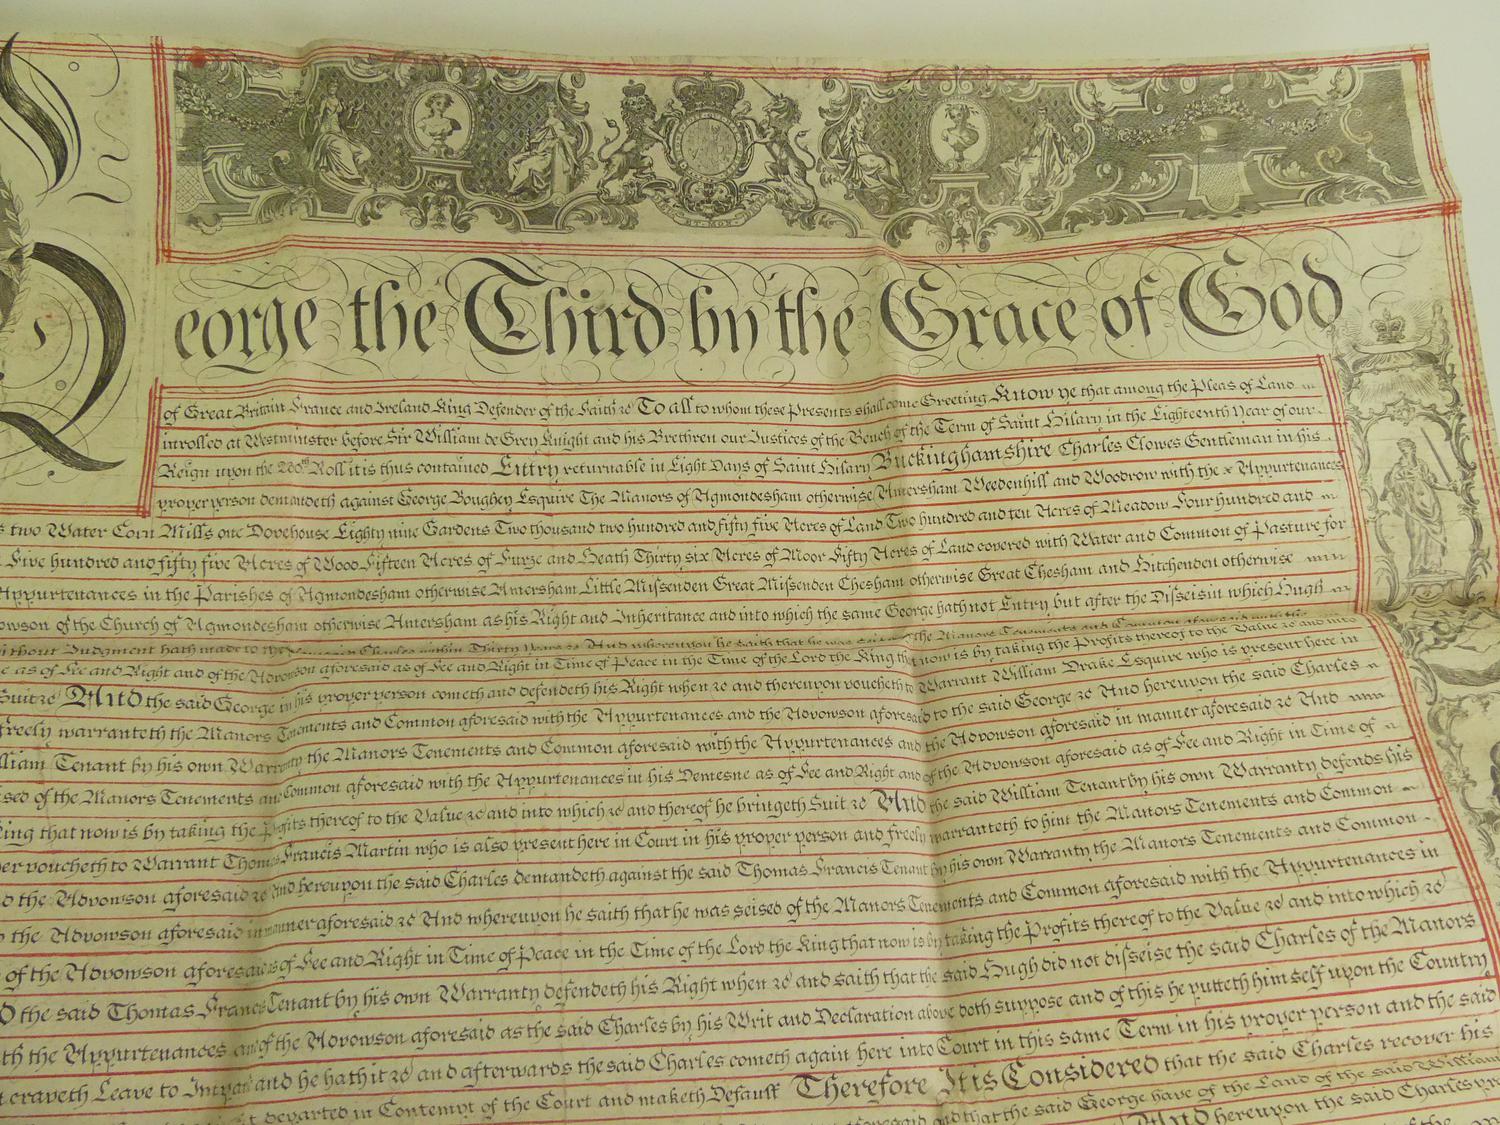 ET MON
eorge the Third by the Grace of God
of Great Britain France and Ireland King Defender of the Faith &c To all to whom these Presents shall come Greeting Know ye that among the Pleas of Land
inrolled at Westminster before Sir William de Grey Knight and his Brethren our Justices of the Bench of the Term of Saint Hilary in the Eighteenth Year of our
Reign upon the Roll it is thus contained Entry returnable in Eight Days of Saint Hilary Buckinghamshire Charles Clowes Gentleman in his
proper person demandeth against George Boughey Esquire The Manors of Agmondesham otherwise Amersham Weedenhill and Woodrow with the Appurtenances
two Water Corn Mills one Dovehouse Eighty nine Gardens Two thousand two hundred and fifty five Acres of Land Two hundred and ten Acres of Meadow Four hundred and
Five hundred and fifty five Acres of Wood Fifteen Acres of Furze and Heath Thirty six Acres of Moor Fifty Acres of Land covered with Water and Common of Pasture for
Appurtenances in the Parishes of Agmondesham otherwise Amersham Little Missenden Great Missenden Chesham otherwise Great Chesham and Hitchenden otherwise
owson of the Church of Agmondesham otherwise Amersham as his Right and Inheritance and into which the same George hath not Entry but after the Disseisin which Hugh
ithout Judgment hath made to the said Charles within Thirty Years &c And whereupon he saith that he was seised of the Manors Tenements and Common aforesaid with the
e as of Fee and Right and of the Advowson aforesaid as of Fee and Right in Time of Peace in the Time of the Lord the King that now is by taking the Profits thereof to the Value &c and into
Suit &c And the said George in his proper person cometh and defendeth his Right when &c and thereupon voucheth to Warrant William Drake Esquire who is present here in
freely warranteth the Manors Tenements and Common aforesaid with the Appurtenances and the Advowson aforesaid to the said George &c And hereupon the said Charles
lliam Tenant by his own Warranty the Manors Tenements and Common aforesaid with the Appurtenances and the Advowson aforesaid in manner aforesaid &c And
sed of the Manors Tenements and Common aforesaid with the Appurtenances in his Demesne as of Fee and Right and of the Advowson aforesaid as of Fee and Right in Time of
ing that now is by taking the Profits thereof to the Value &c and into which &c and thereof he bringeth Suit &c And the said William Tenant by his own Warranty defends his
er voucheth to Warrant Thomas Francis Martin who is also present here in Court in his proper person and freely warranteth to him the Manors Tenements and Common
d the Advowson aforesaid &c And hereupon the said Charles demandeth against the said Thomas Francis Tenant by his own Warranty the Manors Tenements and Common
the Advowson aforesaid in manner aforesaid &c And whereupon he saith that he was seised of the Manors Tenements and Common aforesaid with the Appurtenances in
of the Advowson aforesaid as of Fee and Right in Time of Peace in the Time of the Lord the King that now is by taking the Profits thereof to the Value &c and into which &c
d the said Thomas Francis Tenant by his own Warranty defendeth his Right when &c and saith that the said Hugh did not disseise the said Charles of the Manors
th the Appurtenances and of the Advowson aforesaid as the said Charles by his Writ and Declaration above doth suppose and of this he putteth himself upon the Country
craveth Leave to Imparl and he hath it &c and afterwards the said Charles cometh again here into Court in this same Term in his proper person and the said
departed in Contempt of the Court and maketh Default Therefore It is Considered that the said Charles recover his
aforesaid and that the said George have of the Land of the said William
And hereupon the said Charles